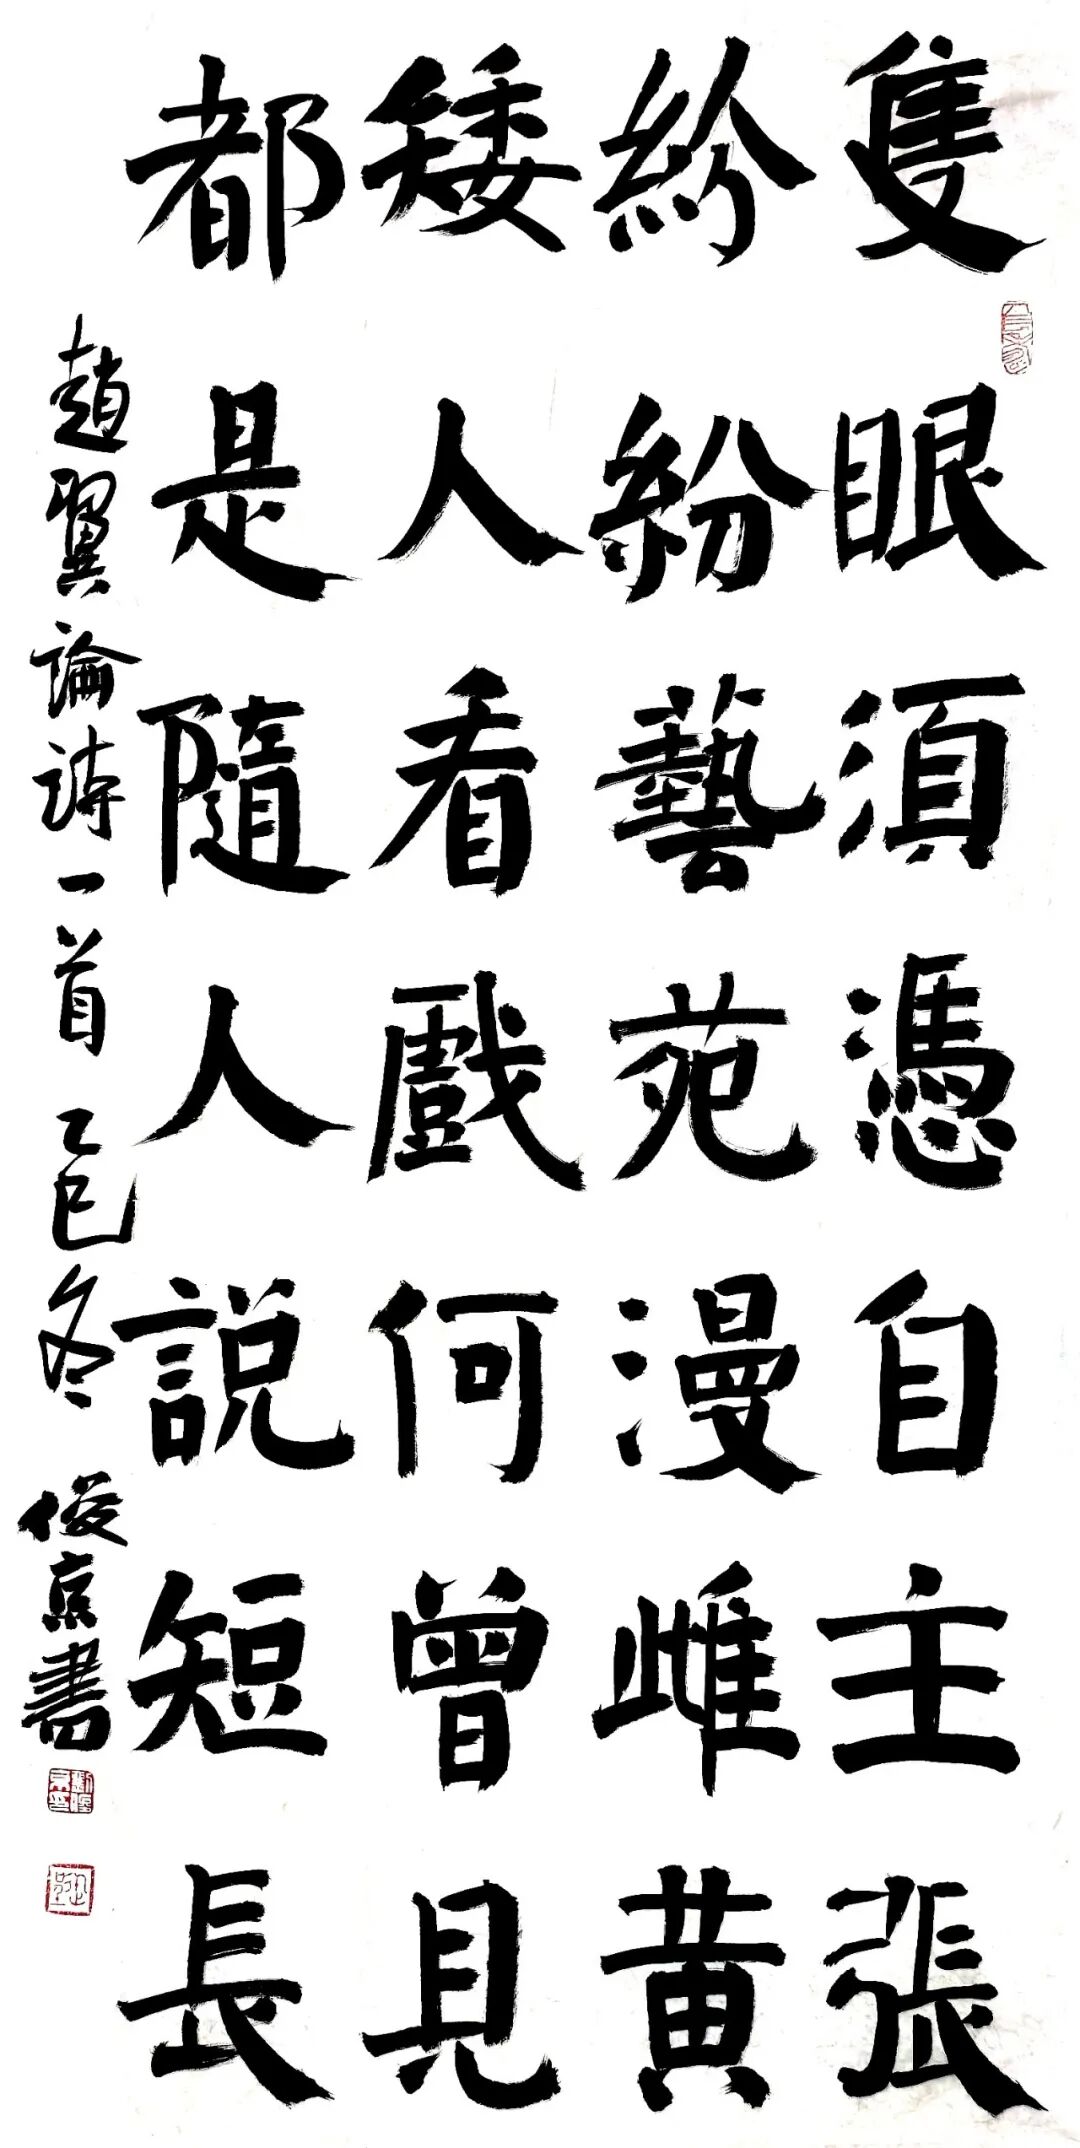 隻眼須憑自主張
紛紛藝苑漫雌黄
矮人看戲何曾見
都是隨人説短長
趙翼論詩一首 乙巳冬 俊京書